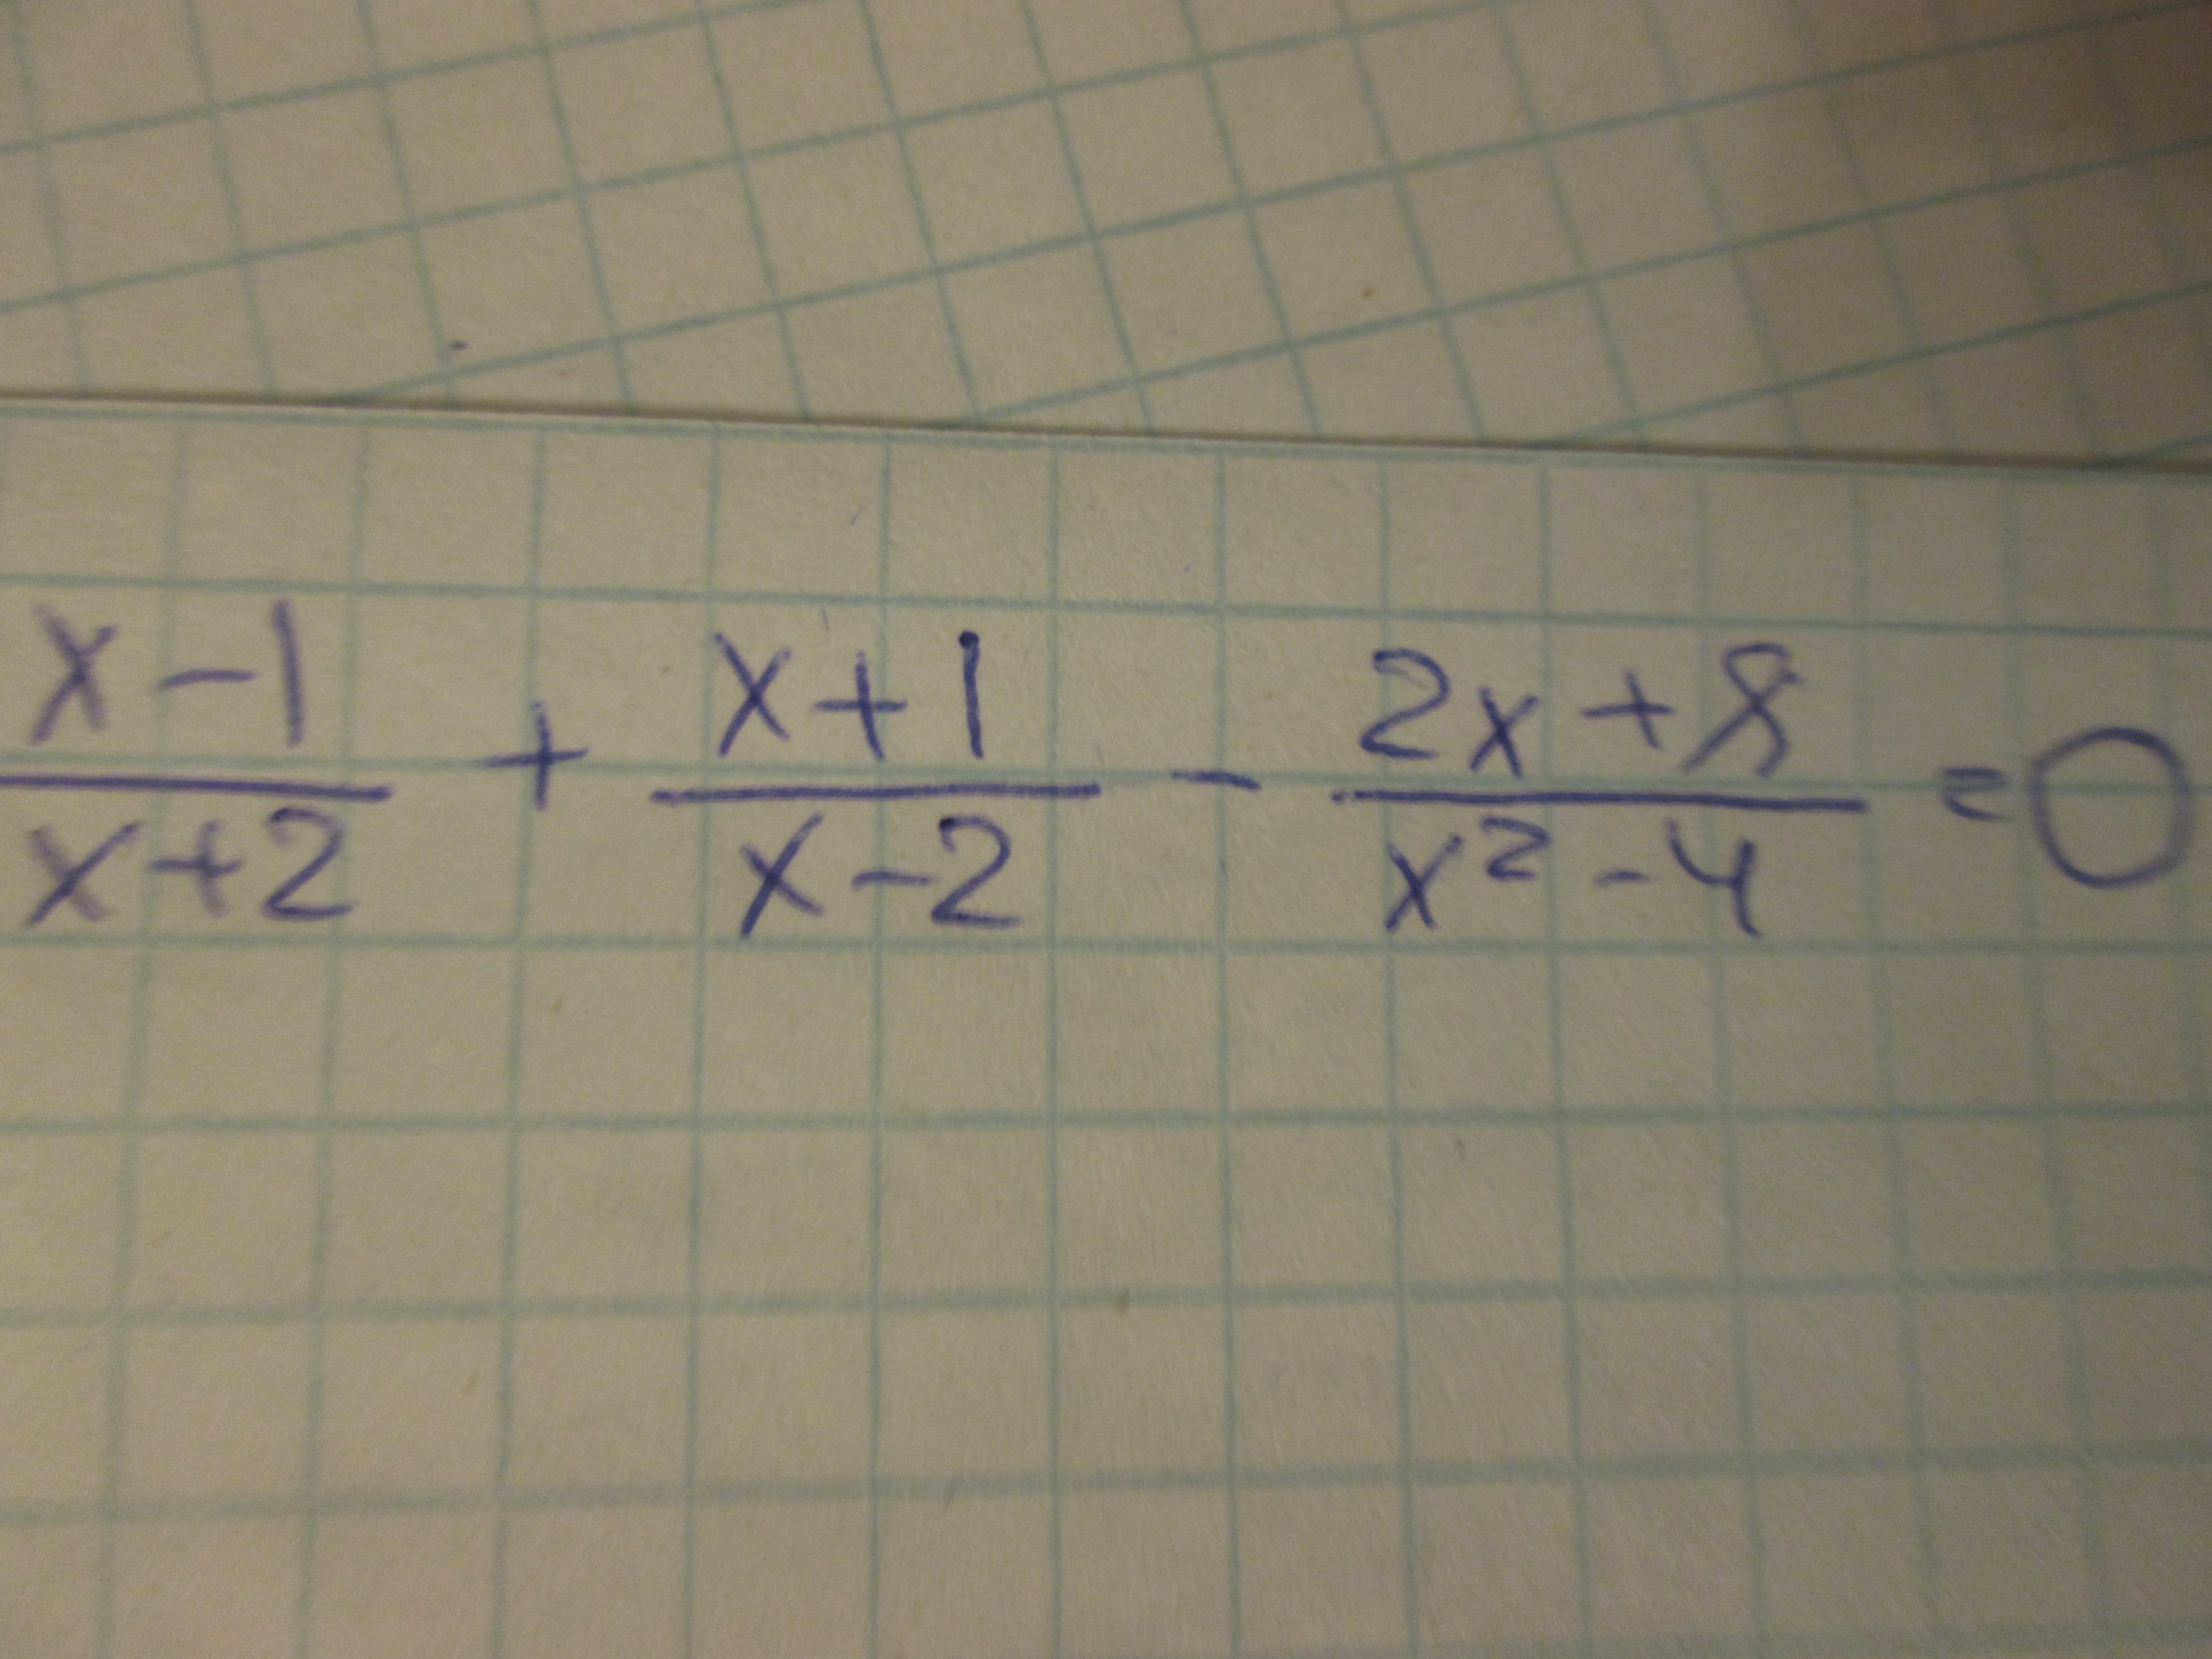 x-1/x+2 + x+1/x-2 - 2x+8/x²-4 =0